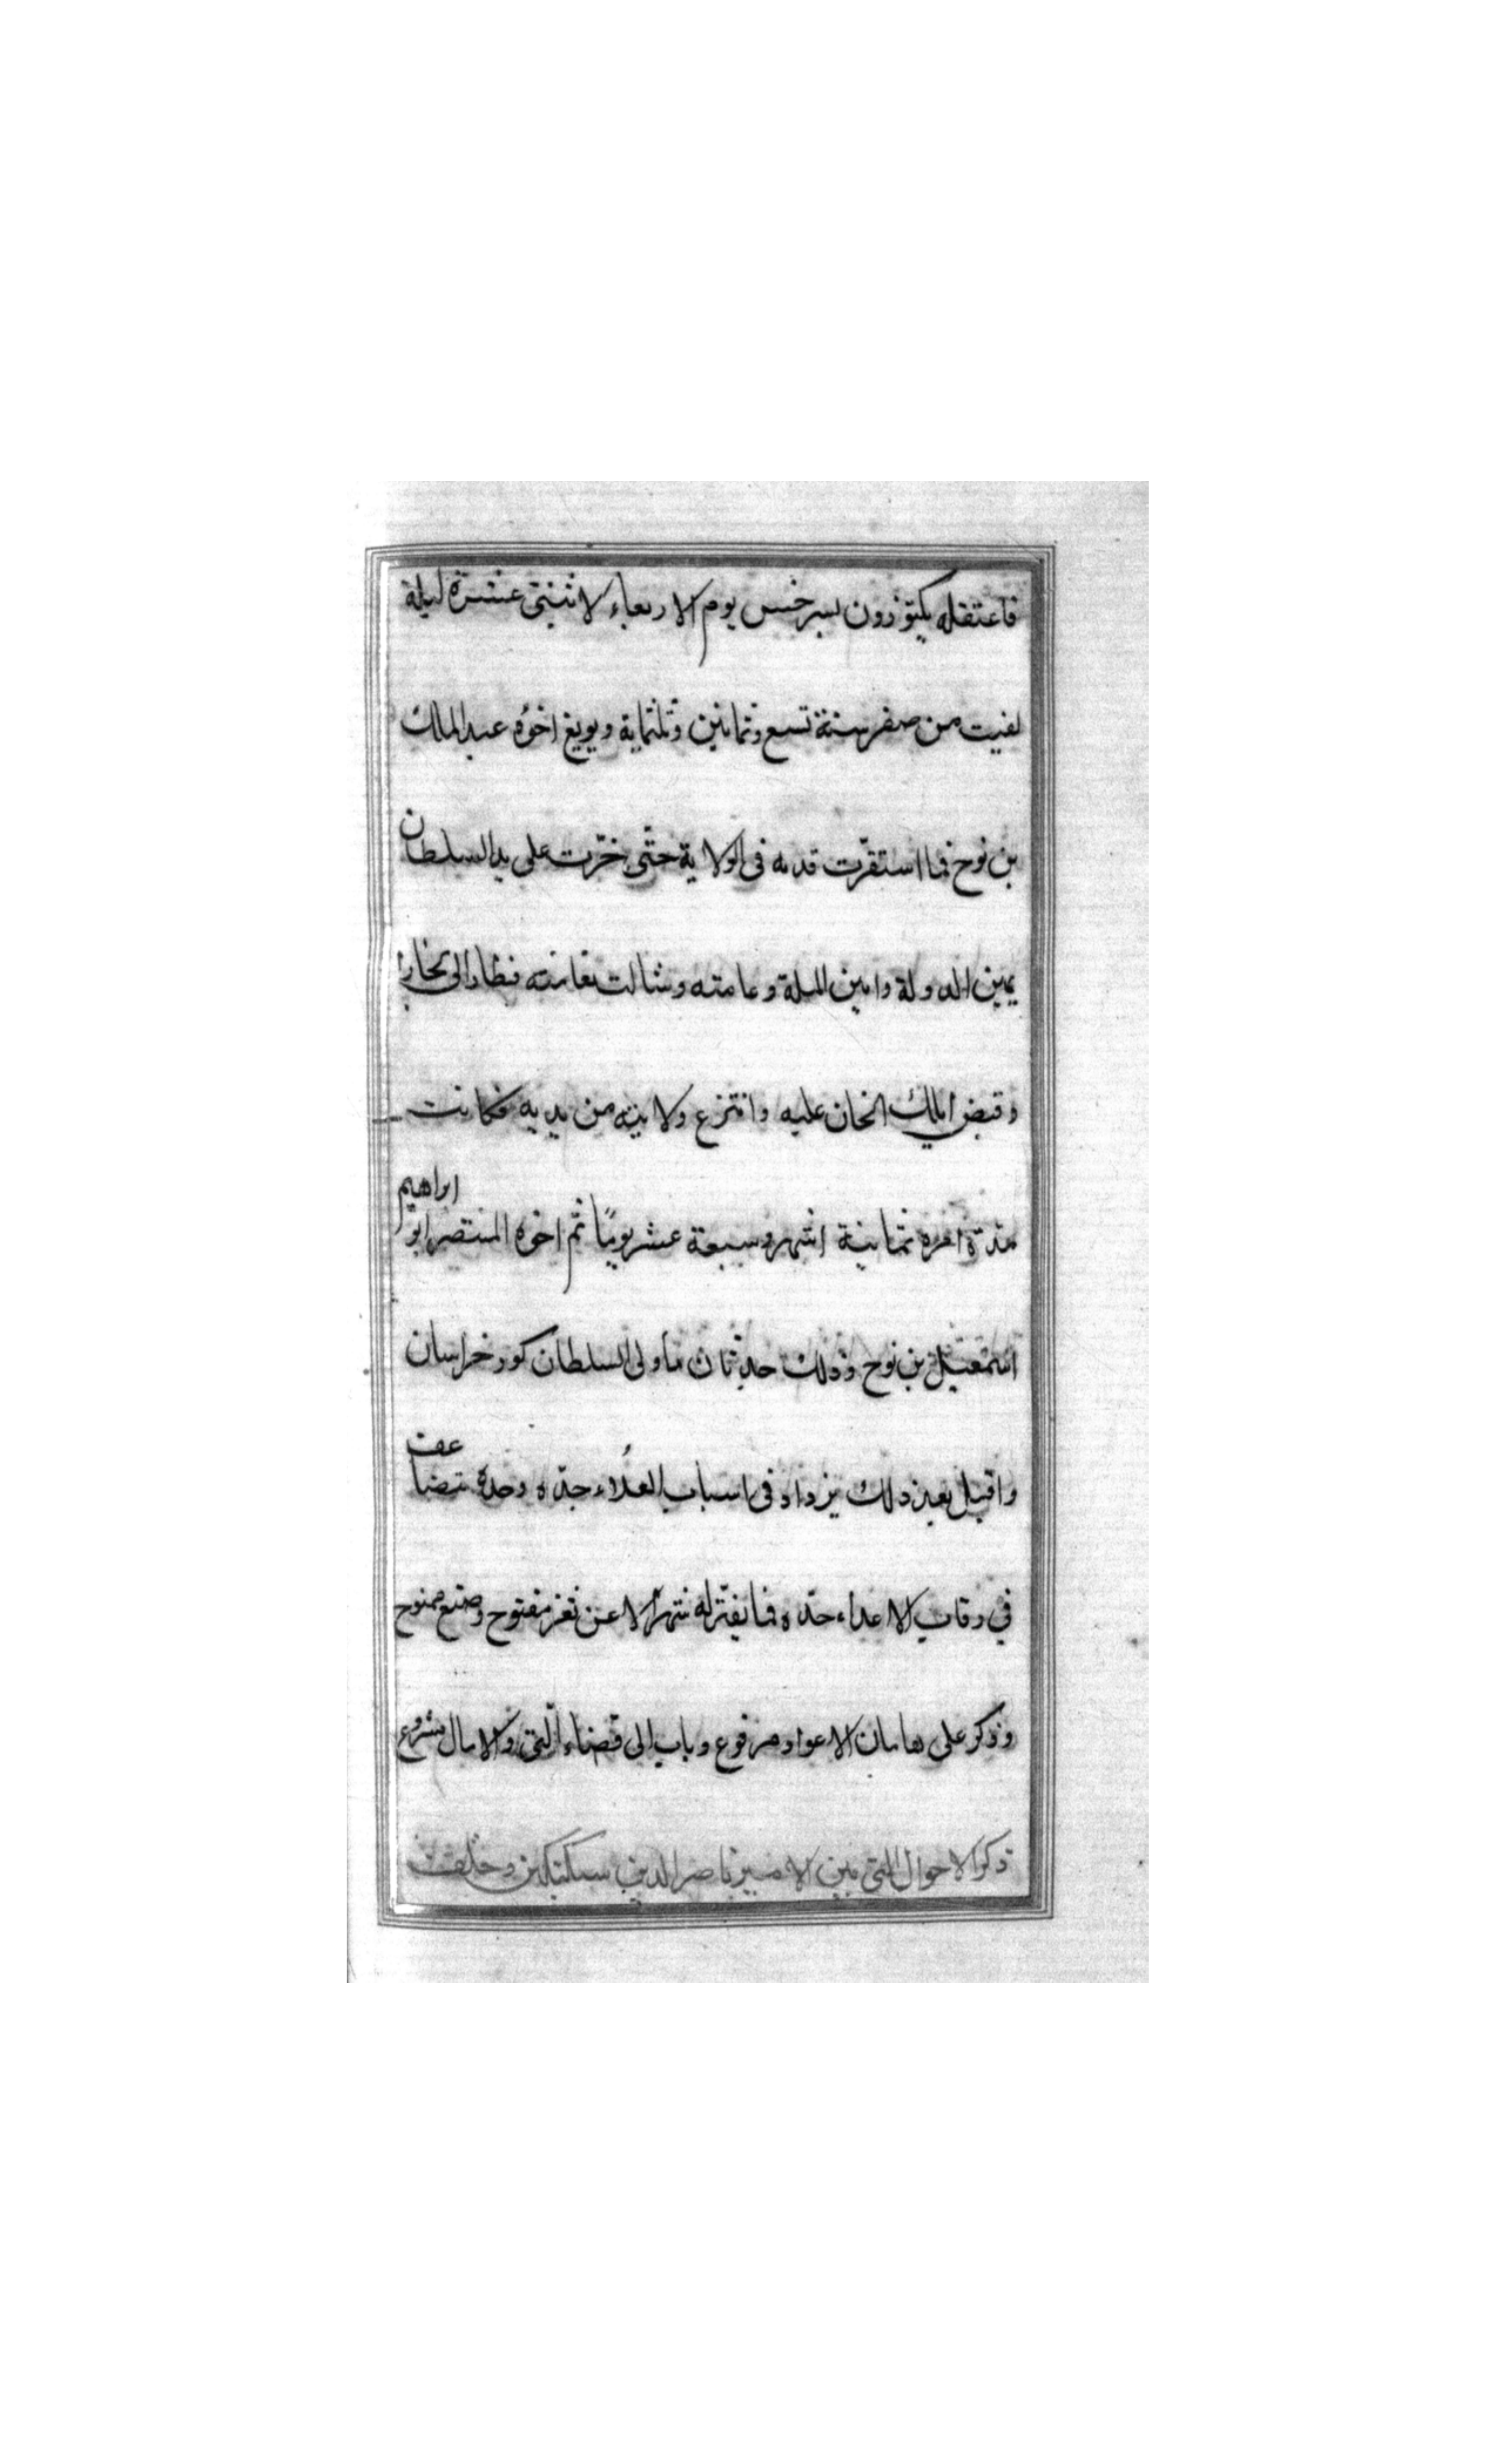 فاعتقله بكتوزون بسرخس يوم الاربعاء لاثنتى عشرة ليلة
بقيت من صفر سنة تسع وثمانين وثلثماية وبويع اخوه عبد الملك
بن نوح فما استقرّت قدمه فى الولاية حتّى خرّت على يد السلطان
يمين الدولة وامين الملة وعامته وشالت نعامته فطار الى بخارا
وقبض ايلك الخان عليه وانتزع ولايته من يديه فكانت
مدة امره ثمانية اشهر وسبعة عشر يومًا ثم اخوه المنتصر ابو ابراهيم
اسمعيل بن نوح وذلك حدثان ما ولى السلطان كور خراسان
واقبل بعيد ذلك يزداد فى اسباب العُلاء جدّه وحدة تتضاعف
في رقاب الاعداء حدّه فما يفترّ له شهر الا عن ثغر مفتوح وصنع ممنوح
وذكر على هامان الاعواد مرفوع وباب الى قضاء التى والامال مشروع
ذكر الاحوال التى بين الامير ناصر الدين سبكتكين وخلف